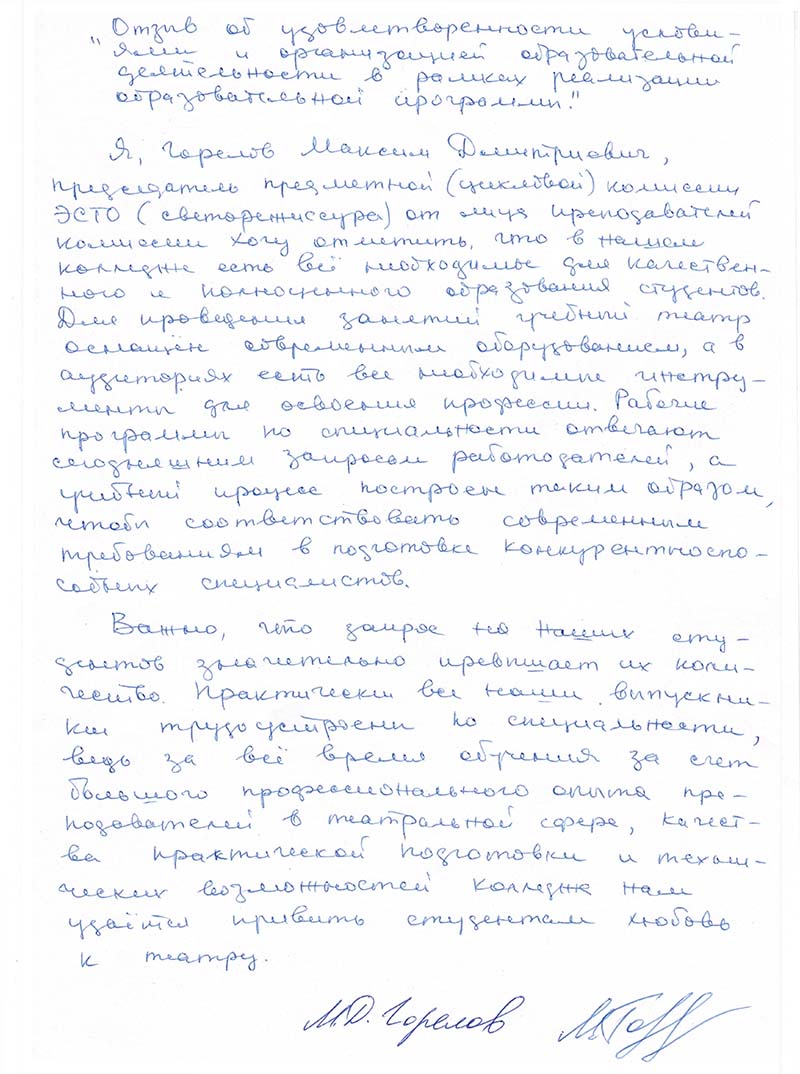 "Отзыв об удовлетворенности услови-
ями и организацией образовательной
деятельности в рамках реализации
образовательной программы."
Я, Горелов Максим Дмитриевич,
председатель предметной (цикловой) комиссии
ЭСТО (светорежиссура) от лица преподавателей
комиссии хочу отметить, что в нашем
колледже есть всё необходимое для качествен-
ного и полноценного образования студентов.
Для проведения занятий учебный театр
оснащён современным оборудованием, а в
аудиториях есть все необходимые инстру-
менты для освоения профессии. Рабочие
программы по специальности отвечают
сегодняшним запросам работодателей, а
учебный процесс построен таким образом,
чтобы соответствовать современным
требованиям в подготовке конкурентноспо-
собных специалистов.
Важно, что запрос на наших сту-
дентов значительно превышает их коли-
чество. Практически все наши выпускни-
ки трудоустроены по специальности,
ведь за всё время обучения за счет
большого профессионального опыта пре-
подавателей в театральной сфере, качест-
ва практической подготовки и техни-
ческих возможностей колледжа нам
удаётся привить студентам любовь
к театру.
М.Д. Горелов